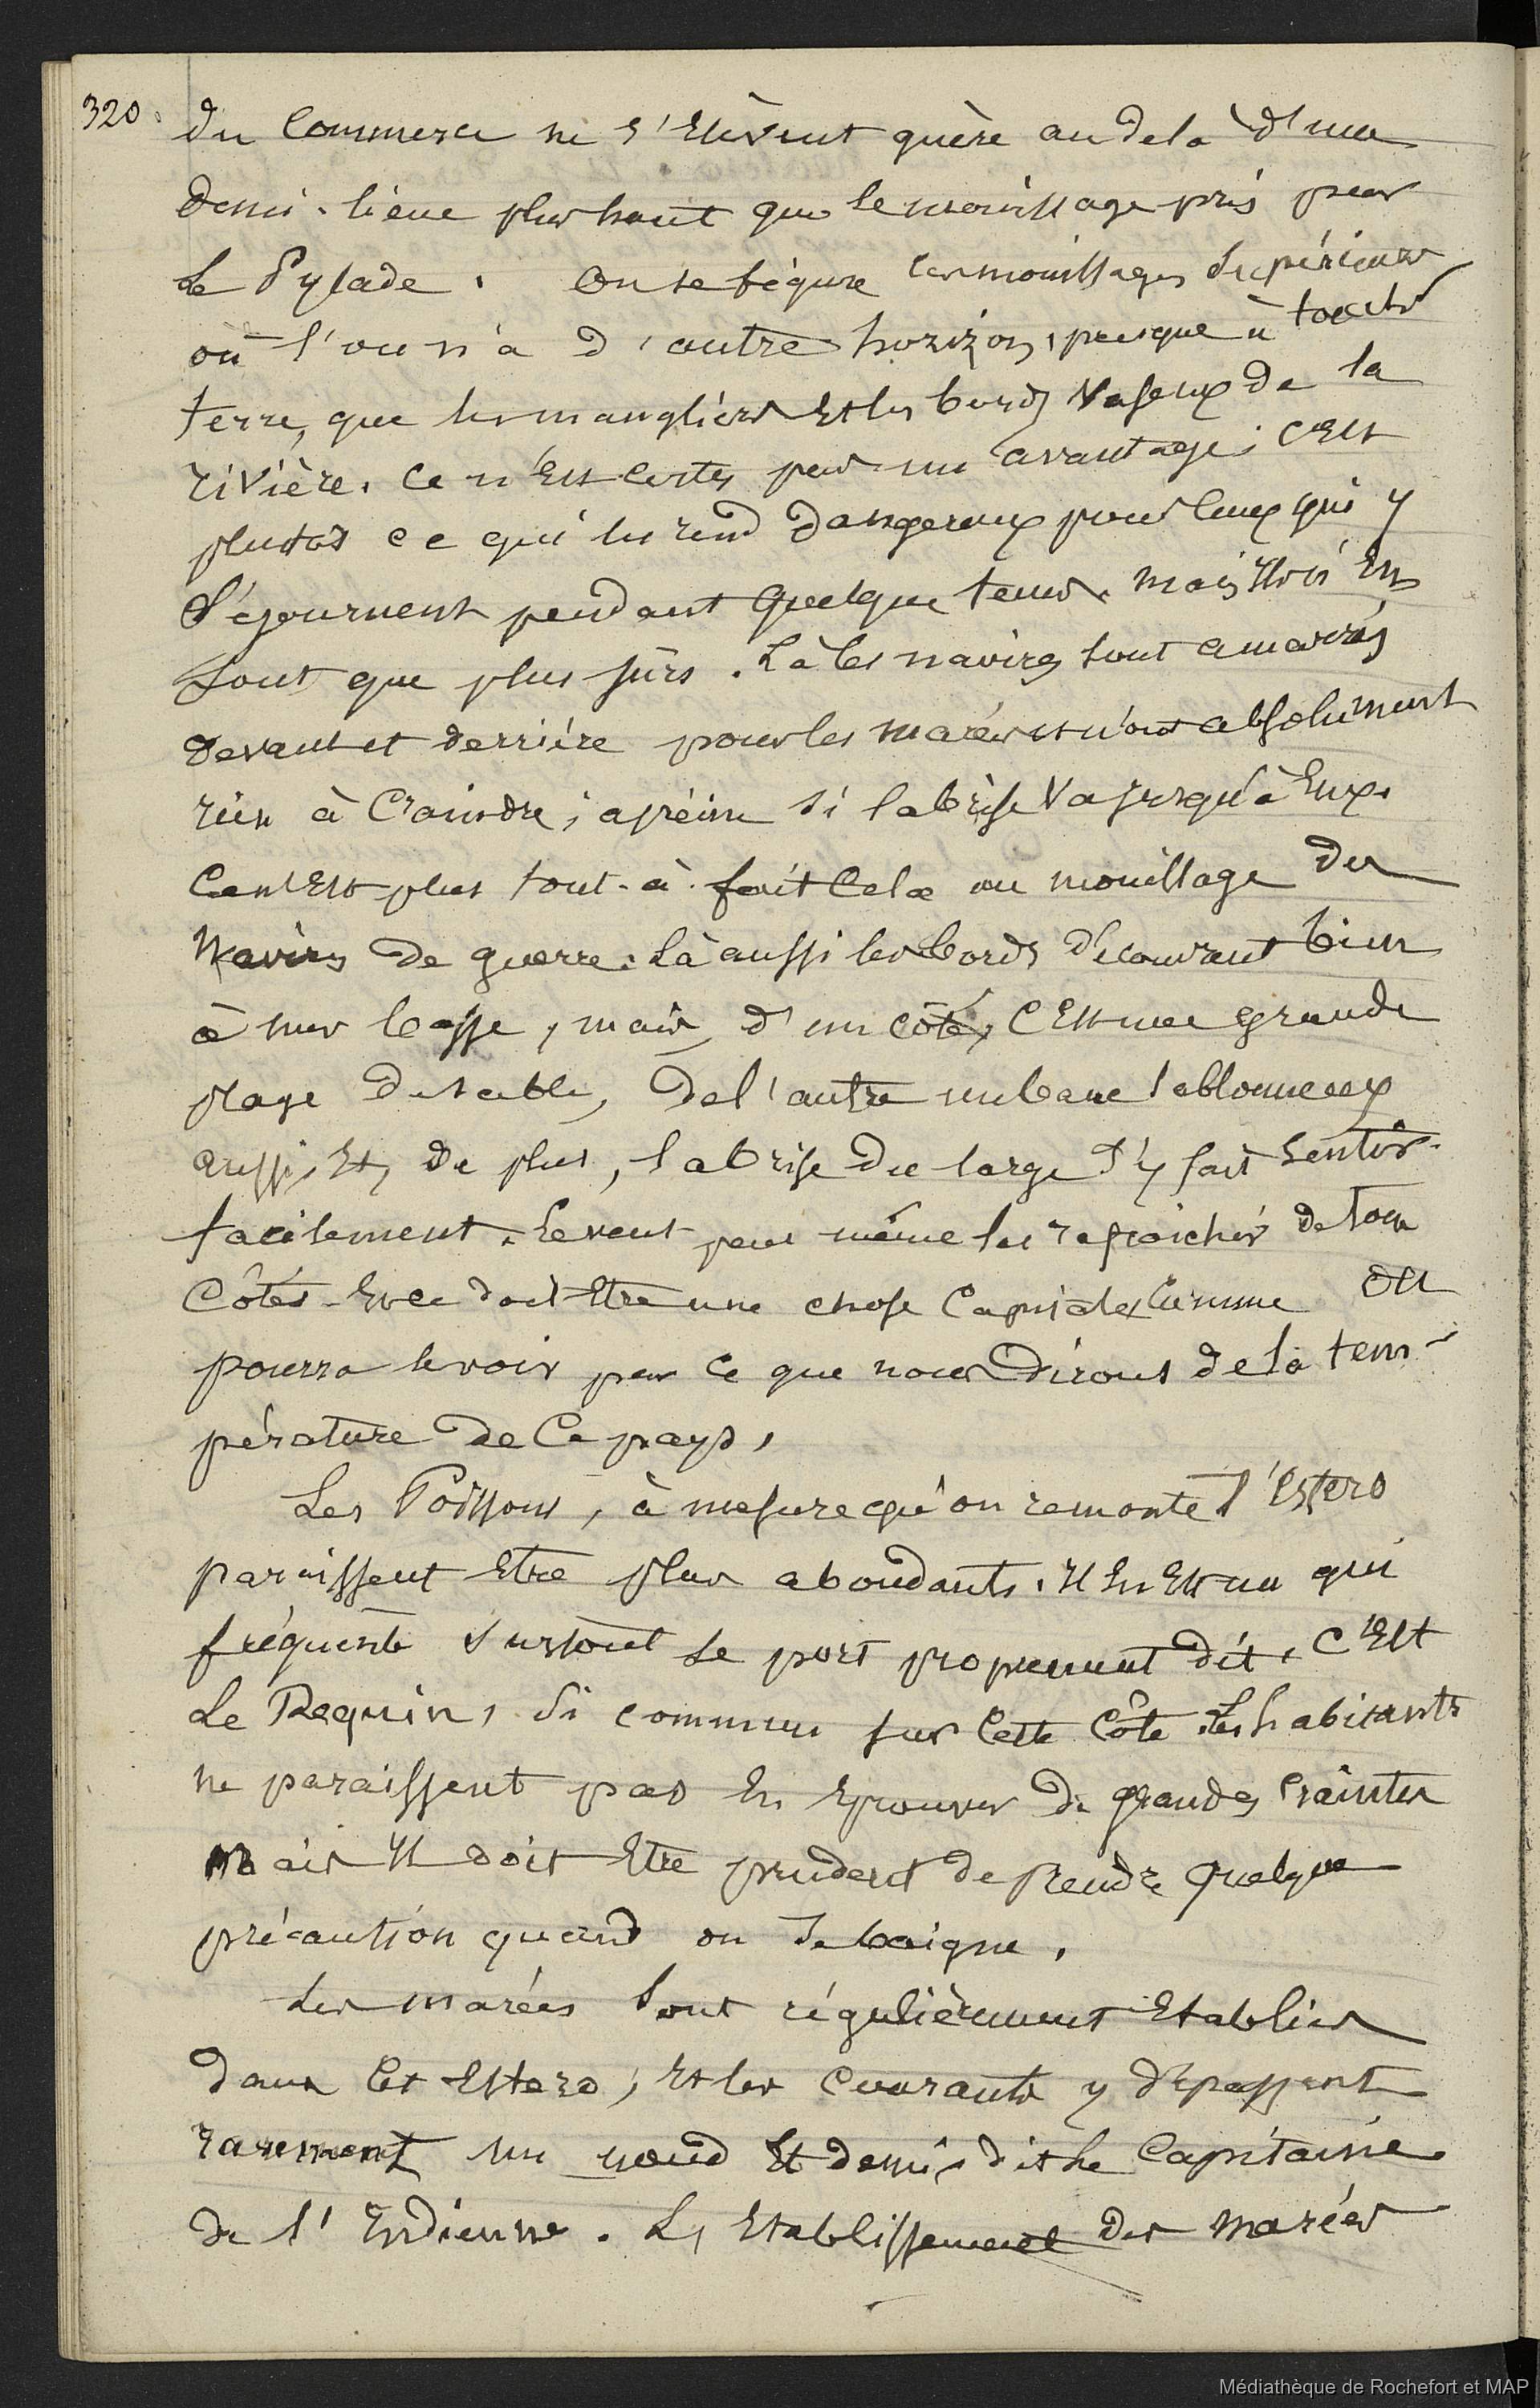 320. du Commerce ne s'Elèvent guère au dela d'une
demi-lieue plus haut que le mouillage pris par
Le Pylade. On se figure les mouillages Supérieurs
où l'on n'a d'autre horizon, presque à toucher
terre, que les mangliers Et les bords Vaseux de la
rivière. Ce n'Est Certes pas un avantage; C'Est
plustot ce qui les rend dangereux pour Ceux qui y
Séjournent pendant Quelque tems. Mais Ils n'En
Sont que plus sûrs. Là les navires sont amarrés
devant et derrière pour les marées et n'ont absolument
rien à Craindre; à peine si la brise Va jusqu'à Eux.
Ce n'Est plus tout-à-fait Cela au mouillage des
Navires de guerre. Là aussi les bords découvrent bien
à mer basse, mais, d'un côté, C'Est une grande
plage de sable, De l'autre un banc sablonneux
aussi, Et, de plus, la brise du large s'y fait sentir
facilement. Le vent peut même les rafraichir de tous
Côtés. Et ce doit Etre une chose Capitale, Comme On
pourra le voir par ce que nous Dirons de la tem-
pérature de Ce pays.
Les Poissons, à mesure qu'on remonte l'Estero
paraissent Etre plus abondants. Il En Est un qui
fréquente surtout Le port proprement dit, C'Est
Le Requin, Si commun sur Cette Côte. Les habitants
ne paraissent pas En Eprouver de grandes Craintes
mais Il doit Etre prudent de Prendre Quelque
précaution quand on Se baigne.
Les marées Sont régulièrement Etablies
dans Cet Estero, Et les Courants y dépassent
rarement un nœud Et demi, dit Le Capitaine
de l'Indienne. L'Etablissement des Marées
Médiathèque de Rochefort et MAP